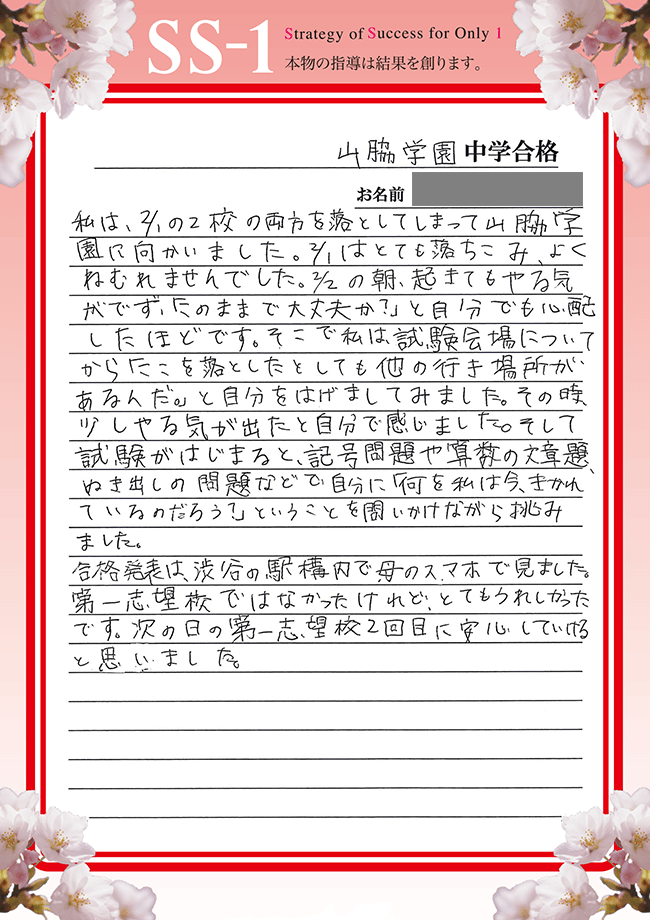 SS-1
Strategy of Success for Only 1
本物の指導は結果を創ります。
山脇学園 中学合格
お名前
私は、2/1の2校の両方を落としてしまって山脇学
園に向かいました。2/1はとても落ちこみ、よく
ねむれませんでした。2/2の朝、起きてもやる気
がでず、「このままで大丈夫か?」と自分でも心配
したほどです。そこで私は、試験会場について
から「ここを落としたとしても他の行き場所が
あるんだ。」と自分をはげましてみました。その時
少しやる気が出たと自分で感じました。そして
試験がはじまると、記号問題や算数の文章題、
ぬき出しの問題などで、自分に「何を私は今、きかれ
ているのだろう?」ということを問いかけながら挑み
ました。
合格発表は、渋谷の駅構内で母のスマホで見ました。
第一志望校ではなかったけれど、とてもうれしかった
です。次の日の第一志望校2回目に安心していける
と思いました。